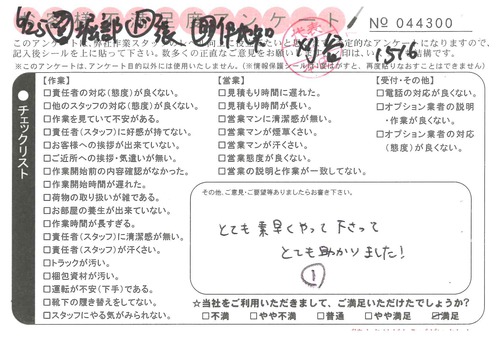 お客様満足度アンケート
№ 044300
6/25
1516
このアンケートは、弊社作業スタッフの
正直なご意見をお願いします
※このアンケートは、アンケート目的以外には使用いたしません。(※情報保護シールははがすと、再度貼りなおすことはできません)
チェックリスト
【作業】
□責任者の対応(態度)が良くない。
□他のスタッフの対応(態度)が良くない。
□作業を見ていて不安がある。
□責任者(スタッフ)に好感が持てない。
□お客様への挨拶が出来ていない。
□ご近所への挨拶・気遣いが無い。
□作業開始前の内容確認がなかった。
□作業開始時間が遅れた。
□荷物の取り扱いが雑である。
□お部屋の養生が出来ていない。
□作業時間が長すぎる。
□責任者(スタッフ)に清潔感が無い。
□責任者(スタッフ)が汗くさい。
□トラックが汚い。
□梱包資材が汚い。
□運転が不安(下手)である。
□靴下の履き替えをしてない。
□スタッフにやる気がみられない。
【営業】
□見積もり時間に遅れた。
□見積もり時間が長い。
□営業マンに清潔感が無い。
□営業マンが煙草くさい。
□営業マンが汗くさい。
□営業態度が良くない。
□営業の説明と作業が一致してない。
【受付・その他】
□電話の対応が良くない。
□オプション業者の説明
・作業が良くない。
□オプション業者の対応
(態度)が良くない。
その他、ご意見・ご要望等ありましたらお書き下さい。
とても素早くやって下さって
とても助かりました!
①
☆当社をご利用いただきまして、ご満足いただけたでしょうか?
□不満 □やや不満 □普通 □やや満足 ☑満足